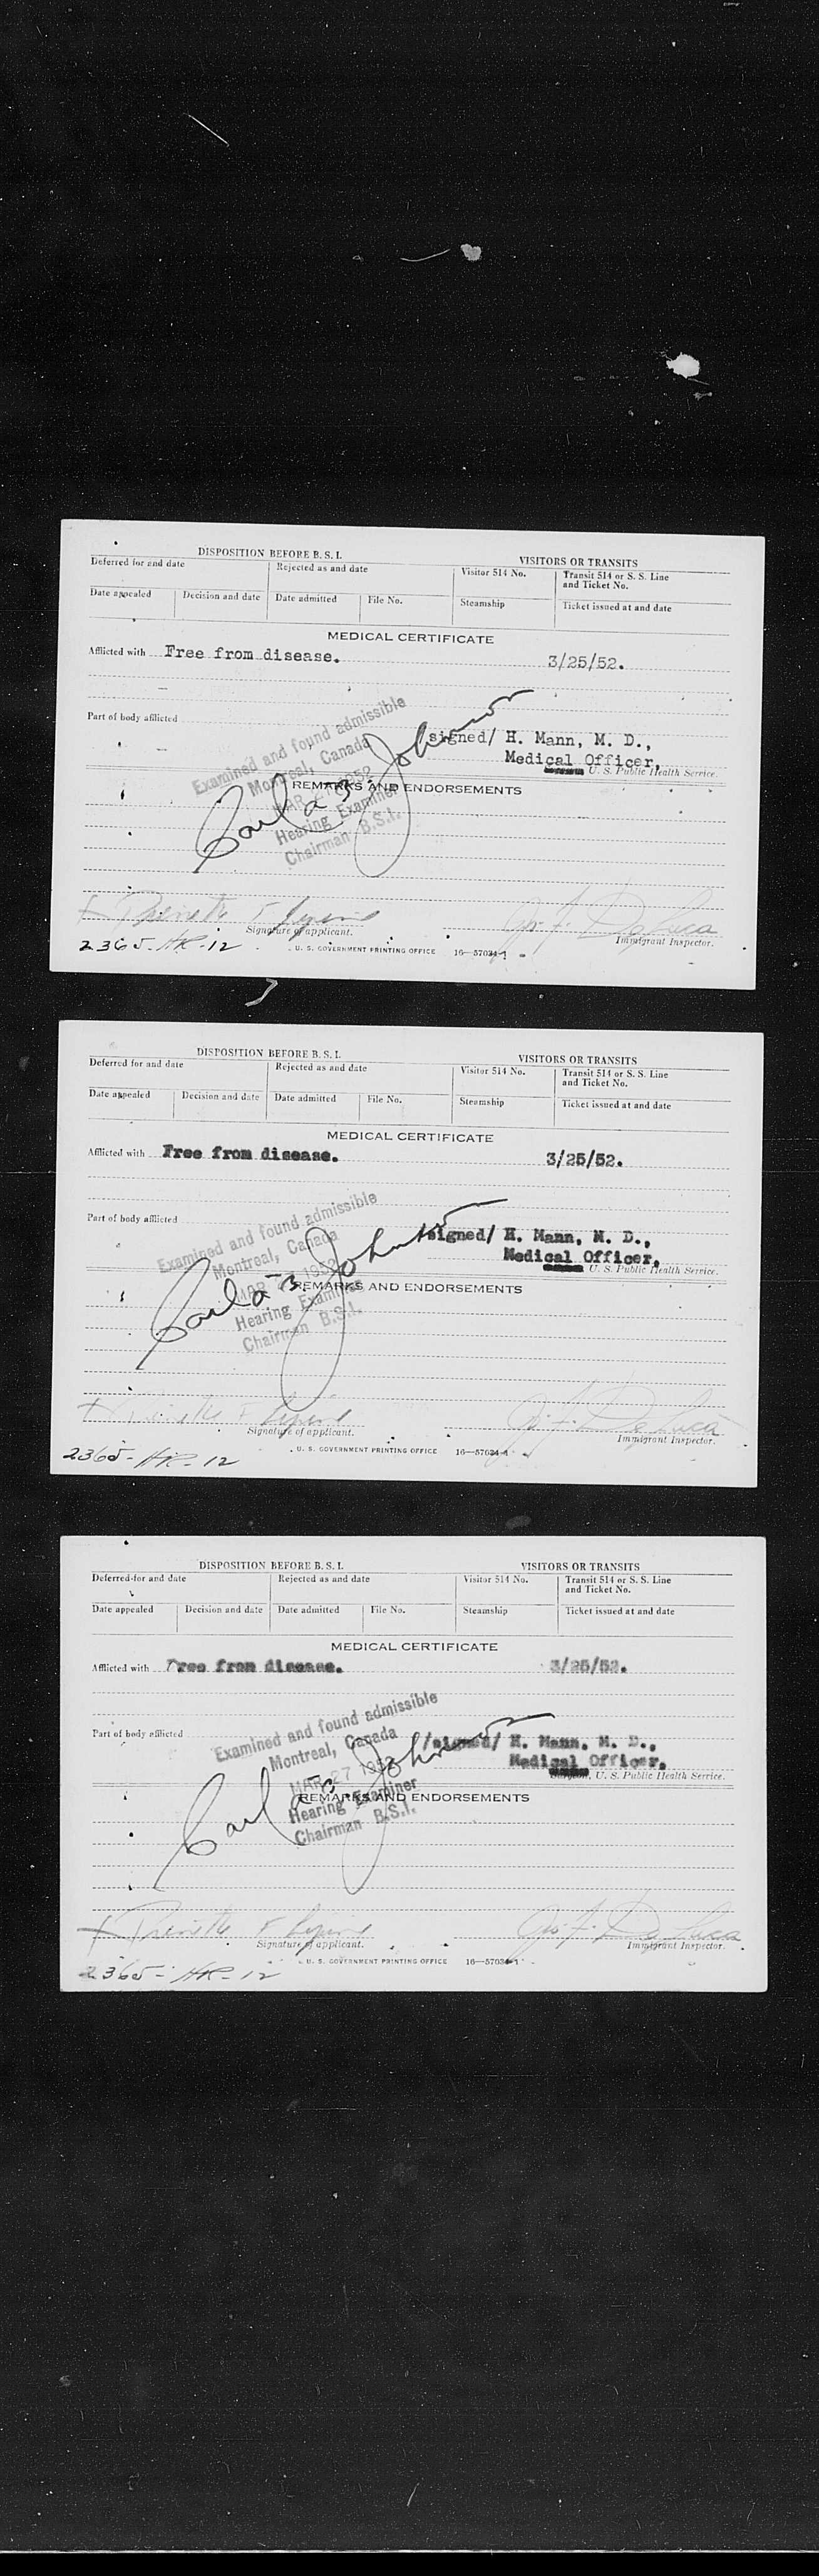 DISPOSITION BEFORE B. S. I. VISITORS OR TRANSITS
Deferred for and date Rejected as and date Visitor 514 No. Transit 514 or S. S. Line and Ticket No.
Date appealed Decision and date Date admitted File No. Steamship Ticket issued at and date
MEDICAL CERTIFICATE
Afflicted with Free from disease. 3/25/52.
Part of body afflicted
Examined and found admissible
Montreal, Canada
MAR 1952
Hearing Examiner
Chairman B.S.I.
Carl B. Johnson
/signed/ H. Mann, M. D.,
Medical Officer,
U. S. Public Health Service.
REMARKS AND ENDORSEMENTS
Signature of applicant. Immigrant Inspector.
2365-HR-12 U. S. GOVERNMENT PRINTING OFFICE 16—57034-1
DISPOSITION BEFORE B. S. I. VISITORS OR TRANSITS
Deferred for and date Rejected as and date Visitor 514 No. Transit 514 or S. S. Line and Ticket No.
Date appealed Decision and date Date admitted File No. Steamship Ticket issued at and date
MEDICAL CERTIFICATE
Afflicted with Free from disease. 3/25/52.
Part of body afflicted
Examined and found admissible
Montreal, Canada
MAR 1952
Hearing Examiner
Chairman B.S.I.
Carl B. Johnson
/signed/ H. Mann, M. D.,
Medical Officer,
U. S. Public Health Service.
REMARKS AND ENDORSEMENTS
Signature of applicant. Immigrant Inspector.
2365-HR-12 U. S. GOVERNMENT PRINTING OFFICE 16—57034-1
DISPOSITION BEFORE B. S. I. VISITORS OR TRANSITS
Deferred for and date Rejected as and date Visitor 514 No. Transit 514 or S. S. Line and Ticket No.
Date appealed Decision and date Date admitted File No. Steamship Ticket issued at and date
MEDICAL CERTIFICATE
Afflicted with Free from disease. 3/25/52.
Part of body afflicted
Examined and found admissible
Montreal, Canada
MAR 27 1952
Hearing Examiner
Chairman B.S.I.
Carl B. Johnson
/signed/ H. Mann, M. D.,
Medical Officer,
U. S. Public Health Service.
REMARKS AND ENDORSEMENTS
Signature of applicant. Immigrant Inspector.
2365-HR-12 U. S. GOVERNMENT PRINTING OFFICE 16—57034-1